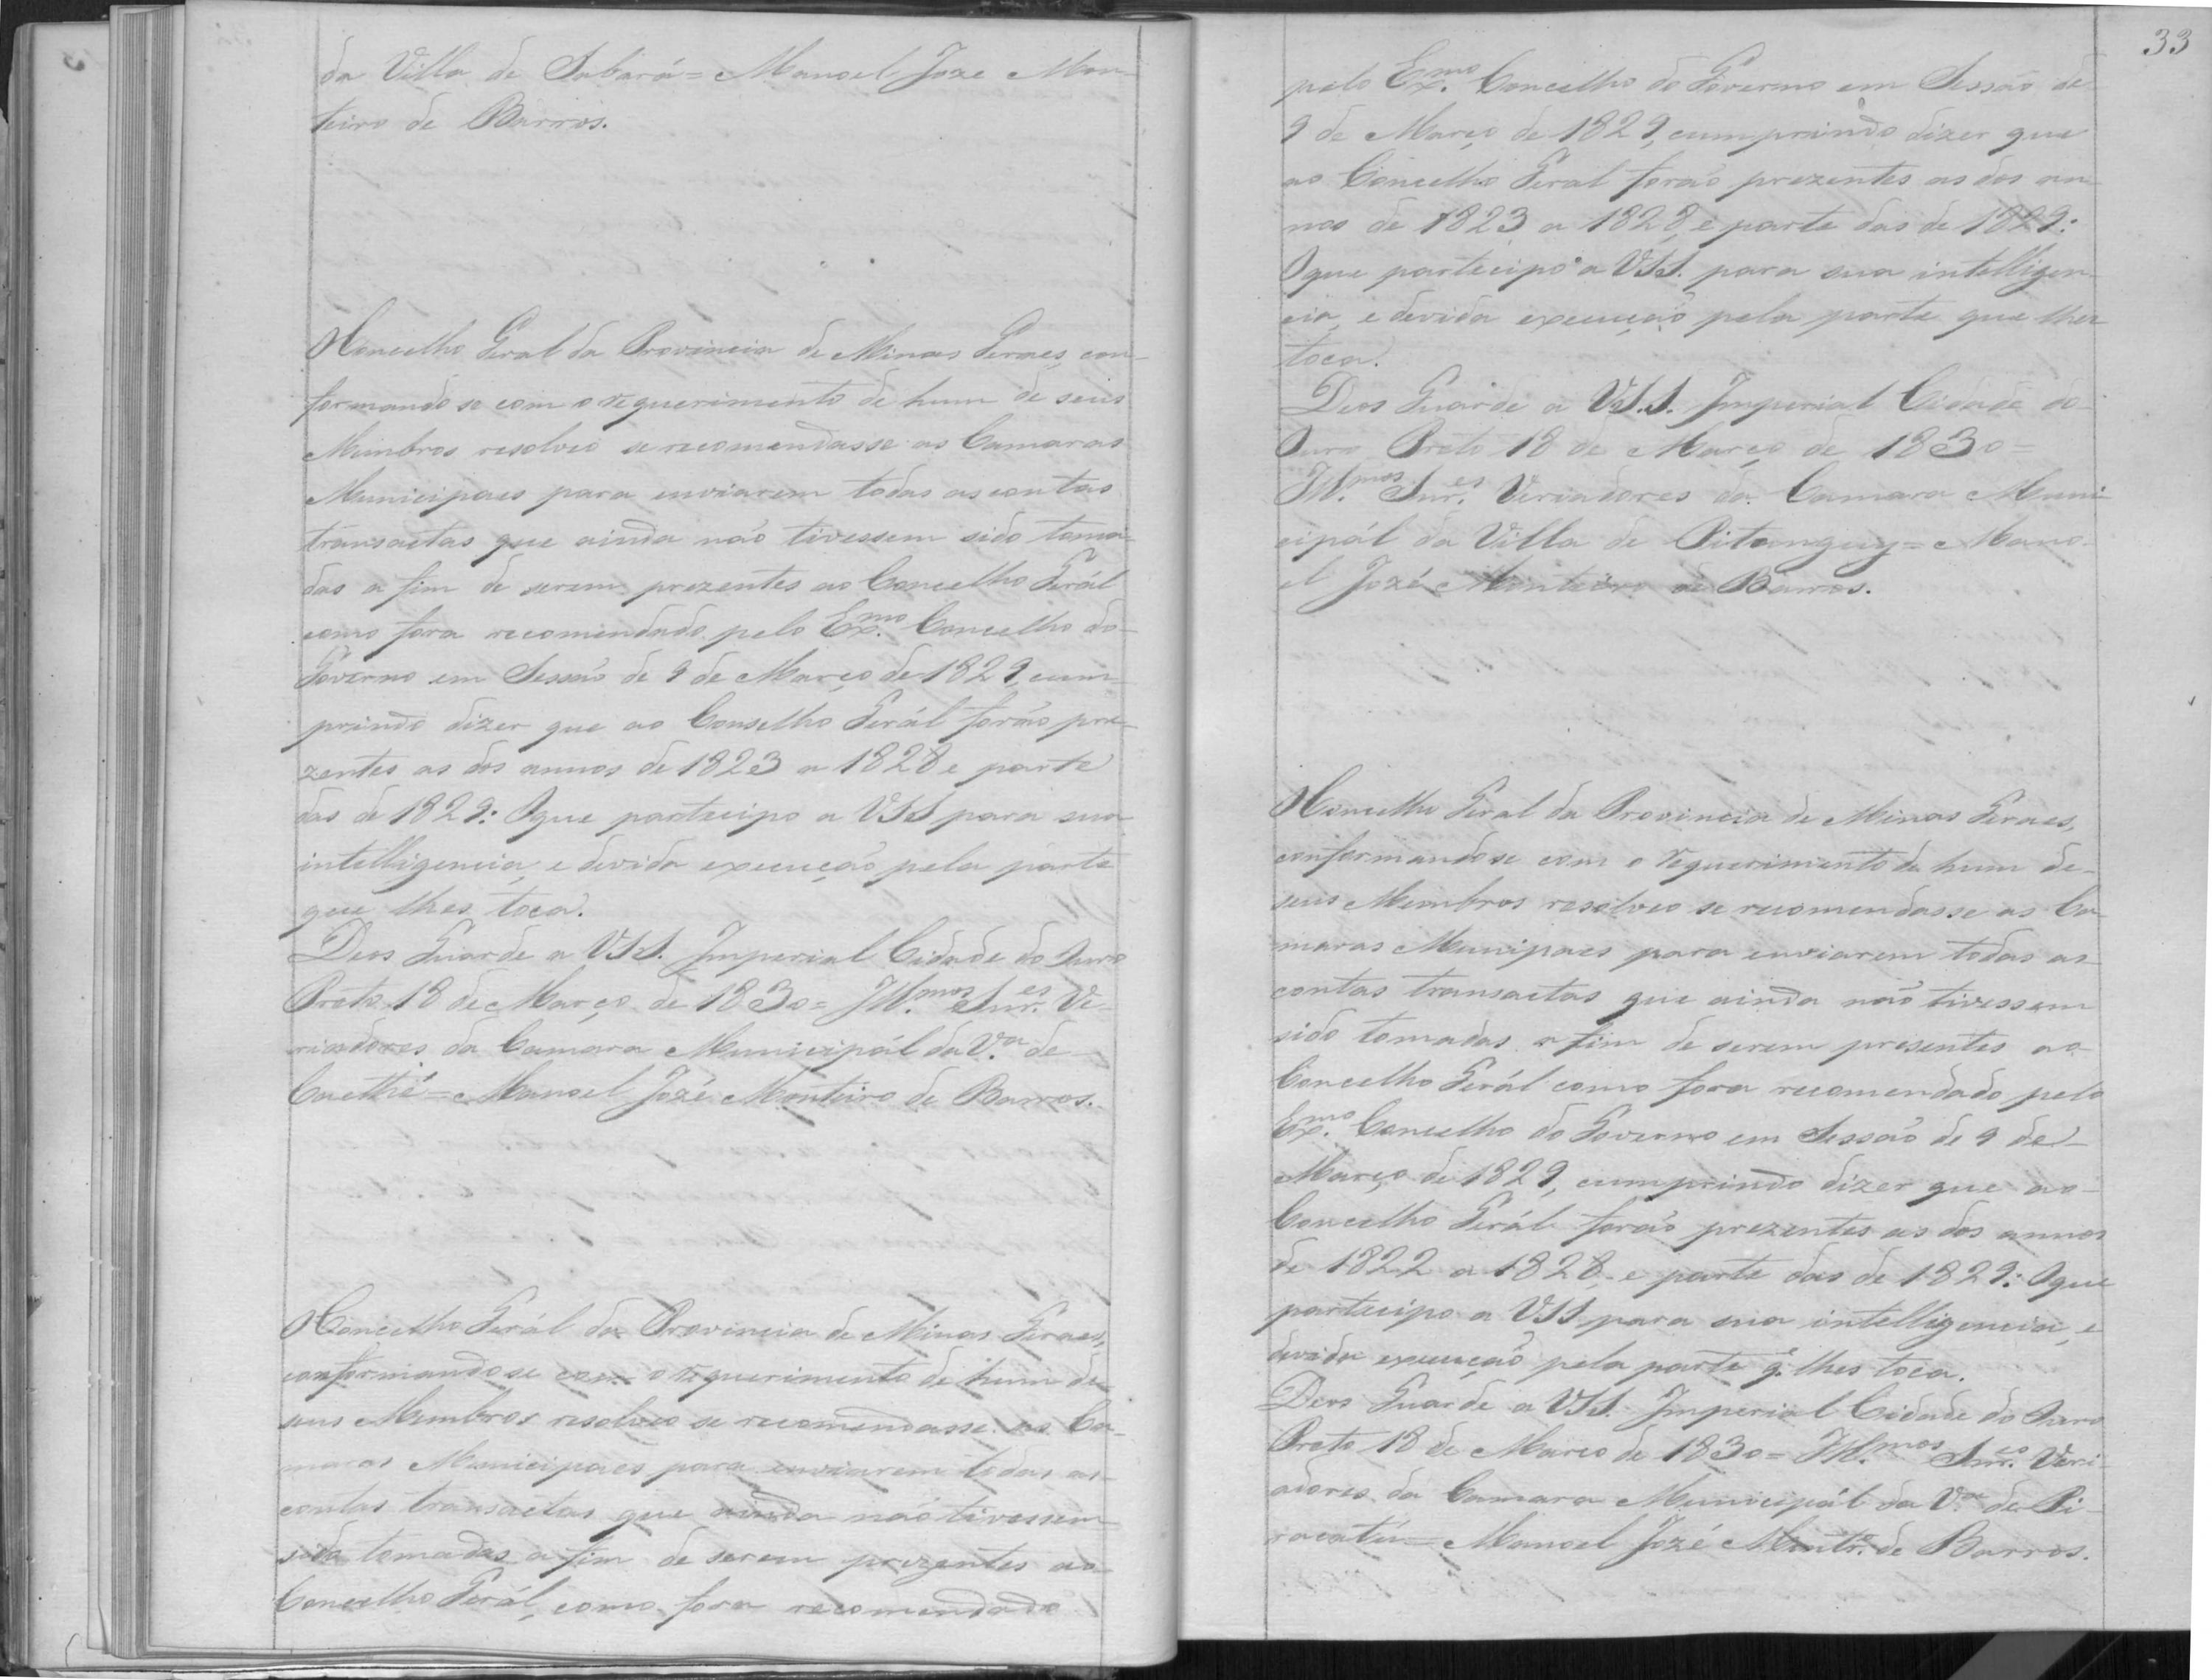 da Villa de Sabará = Manoel Joze Mon-
teiro de Barros.
O Concelho Geral da Provincia de Minas Geraes, con-
formando se com o requerimento de hum de seus
Membros resolveo se recomendasse as Camaras
Municipaes para enviarem todas as contas
transactas que ainda não tivessem sido toma-
das a fim de serem prezentes ao Concelho Gerál
como fora recomendado pelo Ex.mo Concelho do
Governo em Sessão de 9 de Março de 1829, cum-
prindo dizer que ao Conselho Gerál forão pre-
zentes as dos annos de 1823 a 1828 e parte
das de 1829: O que participo a VSS para sua
intelligencia, e devida execução pela parte
que lhes toca.
Deos Guarde a VSS. Imperial Cidade do Ouro
Preto 18 de Março de 1830 = Ill.mos Snr.es Ve-
riadores da Camara Municipál da V.a de
Caethé = Manoel Jozé Monteiro de Barros.
O Concelho Gerál da Provincia de Minas Geraes,
conformandose com o requerimento de hum de
seus Membros resolveo se recomendasse as Ca-
maras Municipaes para enviarem todas as
contas transactas que ainda não tivessem
sido tomadas a fim de serem prezentes ao
Concelho Gerál, como fora recomendado
33
pelo Ex.mo Concelho do Governo em Sessão de
9 de Março de 1829, cumprindo dizer que
ao Concelho Geral forão prezentes as dos an-
nos de 1823 a 1828, e parte das de 1829:
O que participo a VSS. para sua intelligen-
cia, e devida execução pela parte que lhes
toca.
Deos Guarde a VS.S. Imperial Cidade do
Ouro Preto 18 de Março de 1830 =
Ill.mos Snr.es Veriadores da Camara Muni-
cipál da Villa de Pitanguy = Mano-
el Jozé Monteiro de Barros.
O Concelho Geral da Provincia de Minas Geraes,
conformandose com o requerimento de hum de
seus Membros resolveo se recomendasse as Ca-
maras Munipaes para enviarem todas as
contas transactas que ainda não tivessem
sido tomadas a fim de serem presentes ao
Concelho Gerál como fora recomendado pelo
Ex.mo Concelho do Governo em Sessão de 9 de
Março de 1829, cumprindo dizer que ao
Concelho Gerál forão prezentes as dos annos
de 1822 a 1828, e parte das de 1829: O que
participo a VSS para sua intelligencia, e
devida execução pela parte q. lhes toca.
Deos Guarde a VSS. Imperial Cidade do Ouro
Preto 18 de Marco de 1830 = Ill.mos Snr.es Veri-
adores da Camara Municipál da V.a de Pi-
racatú = Manoel Jozé Montr.o de Barros.